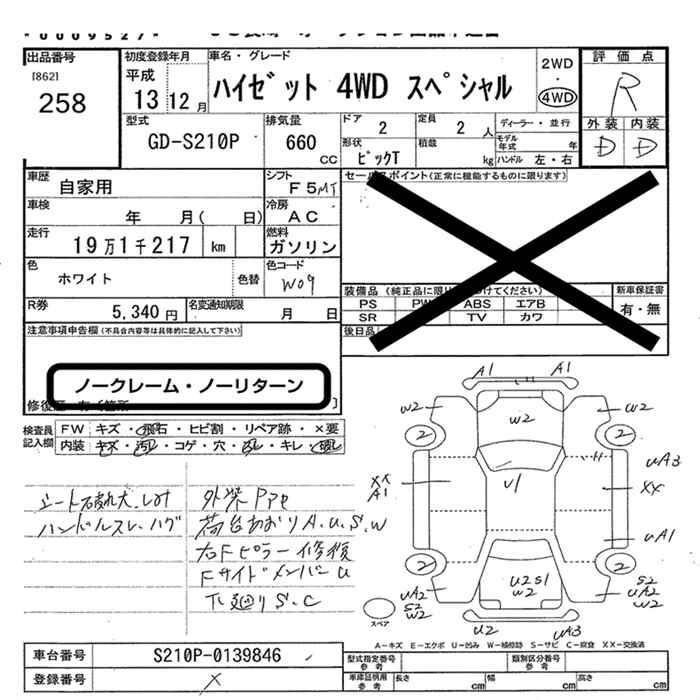 出品番号
[862]
258
初度登録年月
平成
13 12 月
車名・グレード
ハイゼット 4WD スペシャル
2WD
・
4WD
評価点
R
外装 内装
D D
型式
GD-S210P
排気量
660
cc
ドア
2
定員
2 人
ディーラー・並行
モデル年式 年
形状
ピックT
積載
kg
ハンドル 左・右
車歴
自家用
シフト
F5MT
セールスポイント(正常に機能するものに限ります)
車検
年 月( 日)
冷房
AC
走行
19万1千217 km
燃料
ガソリン
色
ホワイト
色替
色コード
W09
装備品
PS PW ABS エアB
SR TV カワ
新車保証書
有・無
後日品
R券
5,340 円
名変通知期限
月 日
注意事項申告欄(不具合内容等は具体的に記入して下さい)
ノークレーム・ノーリターン
検査員記入欄
FW キズ・飛石・ヒビ割・リペア跡・×要
内装 キズ・汚れ・コゲ・穴・・キレ・破れ
シート破れ大.しみ
ハンドルスレ.ハゲ
荷台あおりA.U.S.W
右Fピラー修復
FサイドメンバーU
下廻りS.C
A1 A1
W2 W2
W2
2 2
U1
XX
A1
UA3
XX
UA1
2 2
UA2
S2
W2
U2S1
W2
S2
UA2
W2
U2 UA3
スペア
A-キズ E-エクボ U-凹み W-補修跡 S-サビ C-腐食 XX-交換済
車台番号
S210P-0139846
登録番号
×
型式指定番号
参考
類別区分番号
参考
車庫証明用
参考
長さ cm
幅 cm
高さ cm